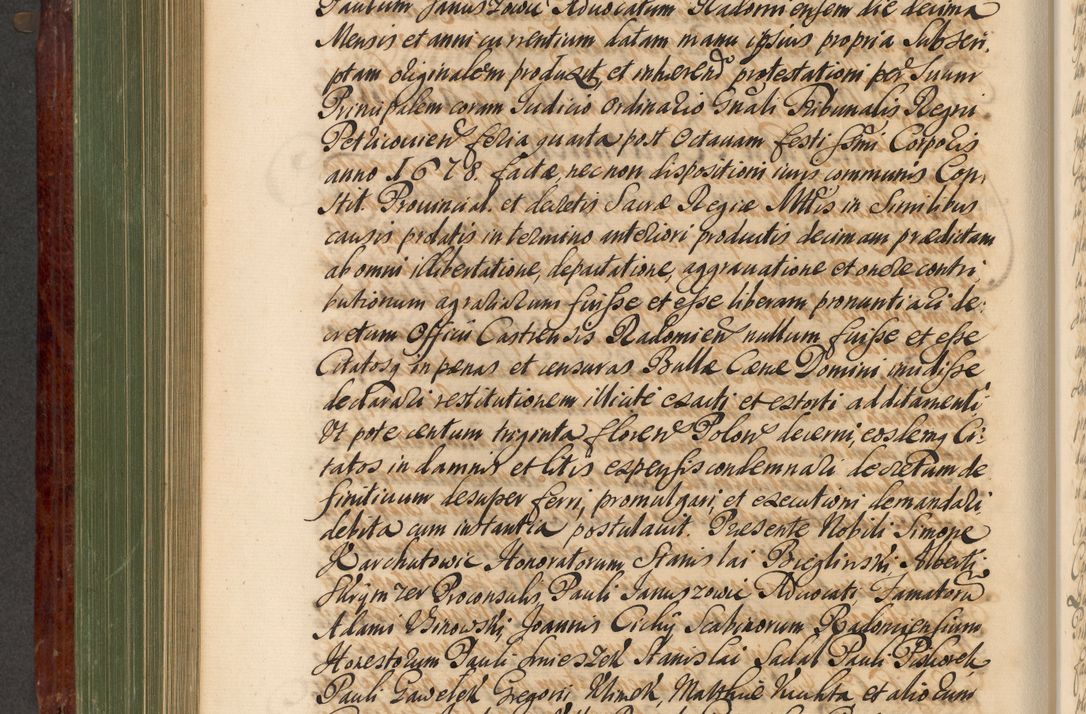 Paulum Januszowic Advocatum Radomiensem die decima
Mensis et anni currentium datam manu ipsius propria Subscri,
ptam originalem produxit, et inherend protestationi per Suum
Principalem coram Iudicio ordinario Gnali Tribunalis Regni
Petricovien feria quarta post Octavam festi ssmi Corporis
anno 1678 factæ, necnon dispositioni iuris communis Con,
stit. Provincial. et decretis Sacræ Regiæ Mttis in Similibus
causis prolatis in termino anteriori productis decimam prædictam
ab omni illibertatione, depactatione, aggravatione et onere contri
butionum agrariarum fuisse et esse liberam pronuntiari de:
cretum Officii Castrensis Radomien nullum fuisse et esse
Citatosq in pænas et censuras Bullæ Cænæ Domini incidisse
declarari restitutionem illicite exacti et extorti additamenti
Ut pote centum triginta floren Polon decerni, eosdemq Ci:
tatos in damnis et litis expensis condemnari decretum de
finitivum desuper ferri, promulgari, et executioni demandari
debita cum instantia postulavit. Præsente Nobili Simone
Karchutowic Honoratorum Stanislai Bieglinski Alberti
Skrymzer Proconsulis Pauli Januszowic Advocati, Famatoru
Adami Usnowski Joannis Cichy Scabinorum Radomiensium
Honestorum Pauli Jmieszek Stanislai Sadal Pauli Piskorek
Pauli Gawelek Gregorii Klimek, Matthiæ Kuchta, et aliorum